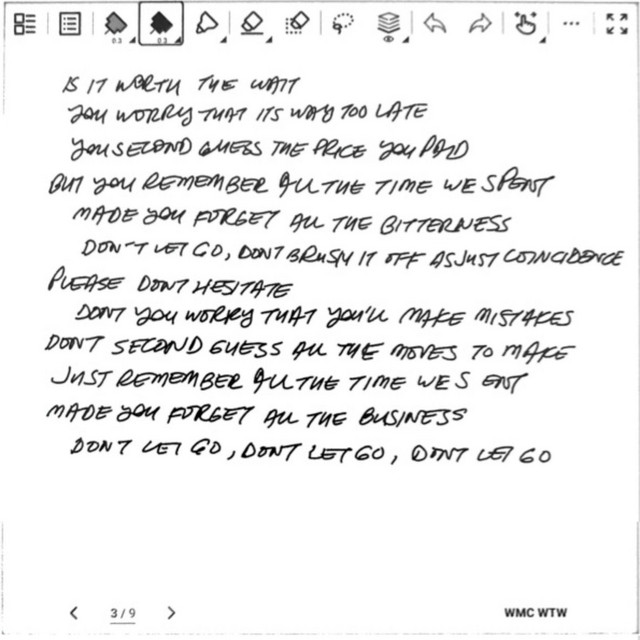 0.3 0.3
IS IT WORTH THE WAIT
YOU WORRY THAT ITS WAY TOO LATE
YOU SECOND GUESS THE PRICE YOU PAID
BUT YOU REMEMBER ALL THE TIME WE SPENT
MADE YOU FORGET ALL THE BITTERNESS
DON'T LET GO, DONT BRUSH IT OFF AS JUST COINCIDENCE
PLEASE DONT HESITATE
DONT YOU WORRY THAT YOU'LL MAKE MISTAKES
DONT SECOND GUESS ALL THE MOVES TO MAKE
JUST REMEMBER ALL THE TIME WE S ENT
MADE YOU FORGET ALL THE BUSINESS
DONT LET GO, DONT LET GO, DONT LET GO
3/9 WMC WTW